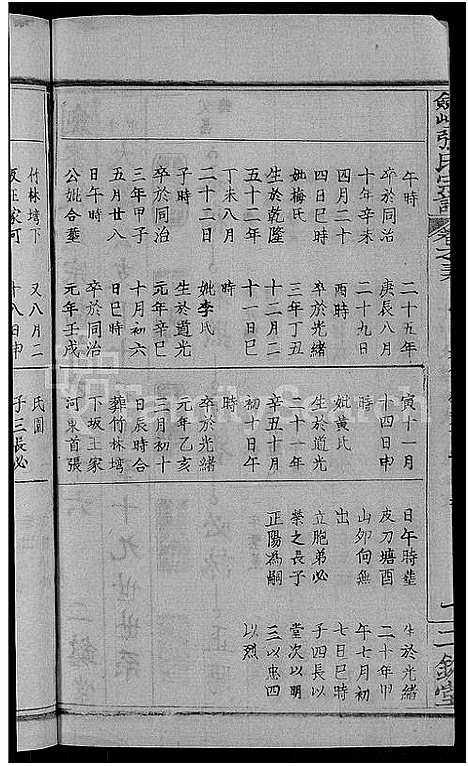 午時
卒於同治
十年辛未
四月二十
四日巳時
妣梅氏
生於乾隆
五十二年
丁未八月
二十二日
子時
卒於同治
三年甲子
五月廿八
日午時
公妣合葬
竹林塆下
二十五年
庚辰八月
二十九日
酉時
卒於光緒
三年丁丑
十二月二
十一日巳
時
妣李氏
生於道光
元年辛巳
十月初六
日巳時
卒於同治
元年壬戌
又八月二
十八日申
寅十一月
十四日申
時
妣黃氏
生於道光
二十一年
辛丑十月
初十日午
時
卒於光緒
元年乙亥
三月初十
日辰時合
葬竹林塆
下坂王家
河東首張
氏園
子三長必
日午時葬
皮刀塘酉
山夘向無
出
立胞弟必
榮之長子
正陽為嗣
生於光緒
二十年
午七月初
七日巳時
子四長以
堂次以明
三以忠四
以烈